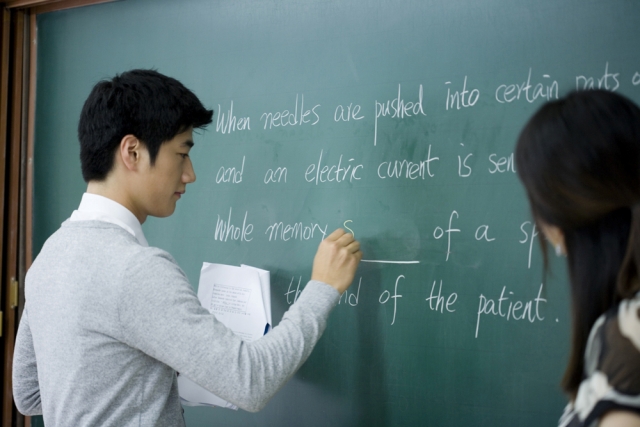 When needles are pushed into certain parts o
and an electric current is sen
Whole memory s of a sp
th nd of the patient.